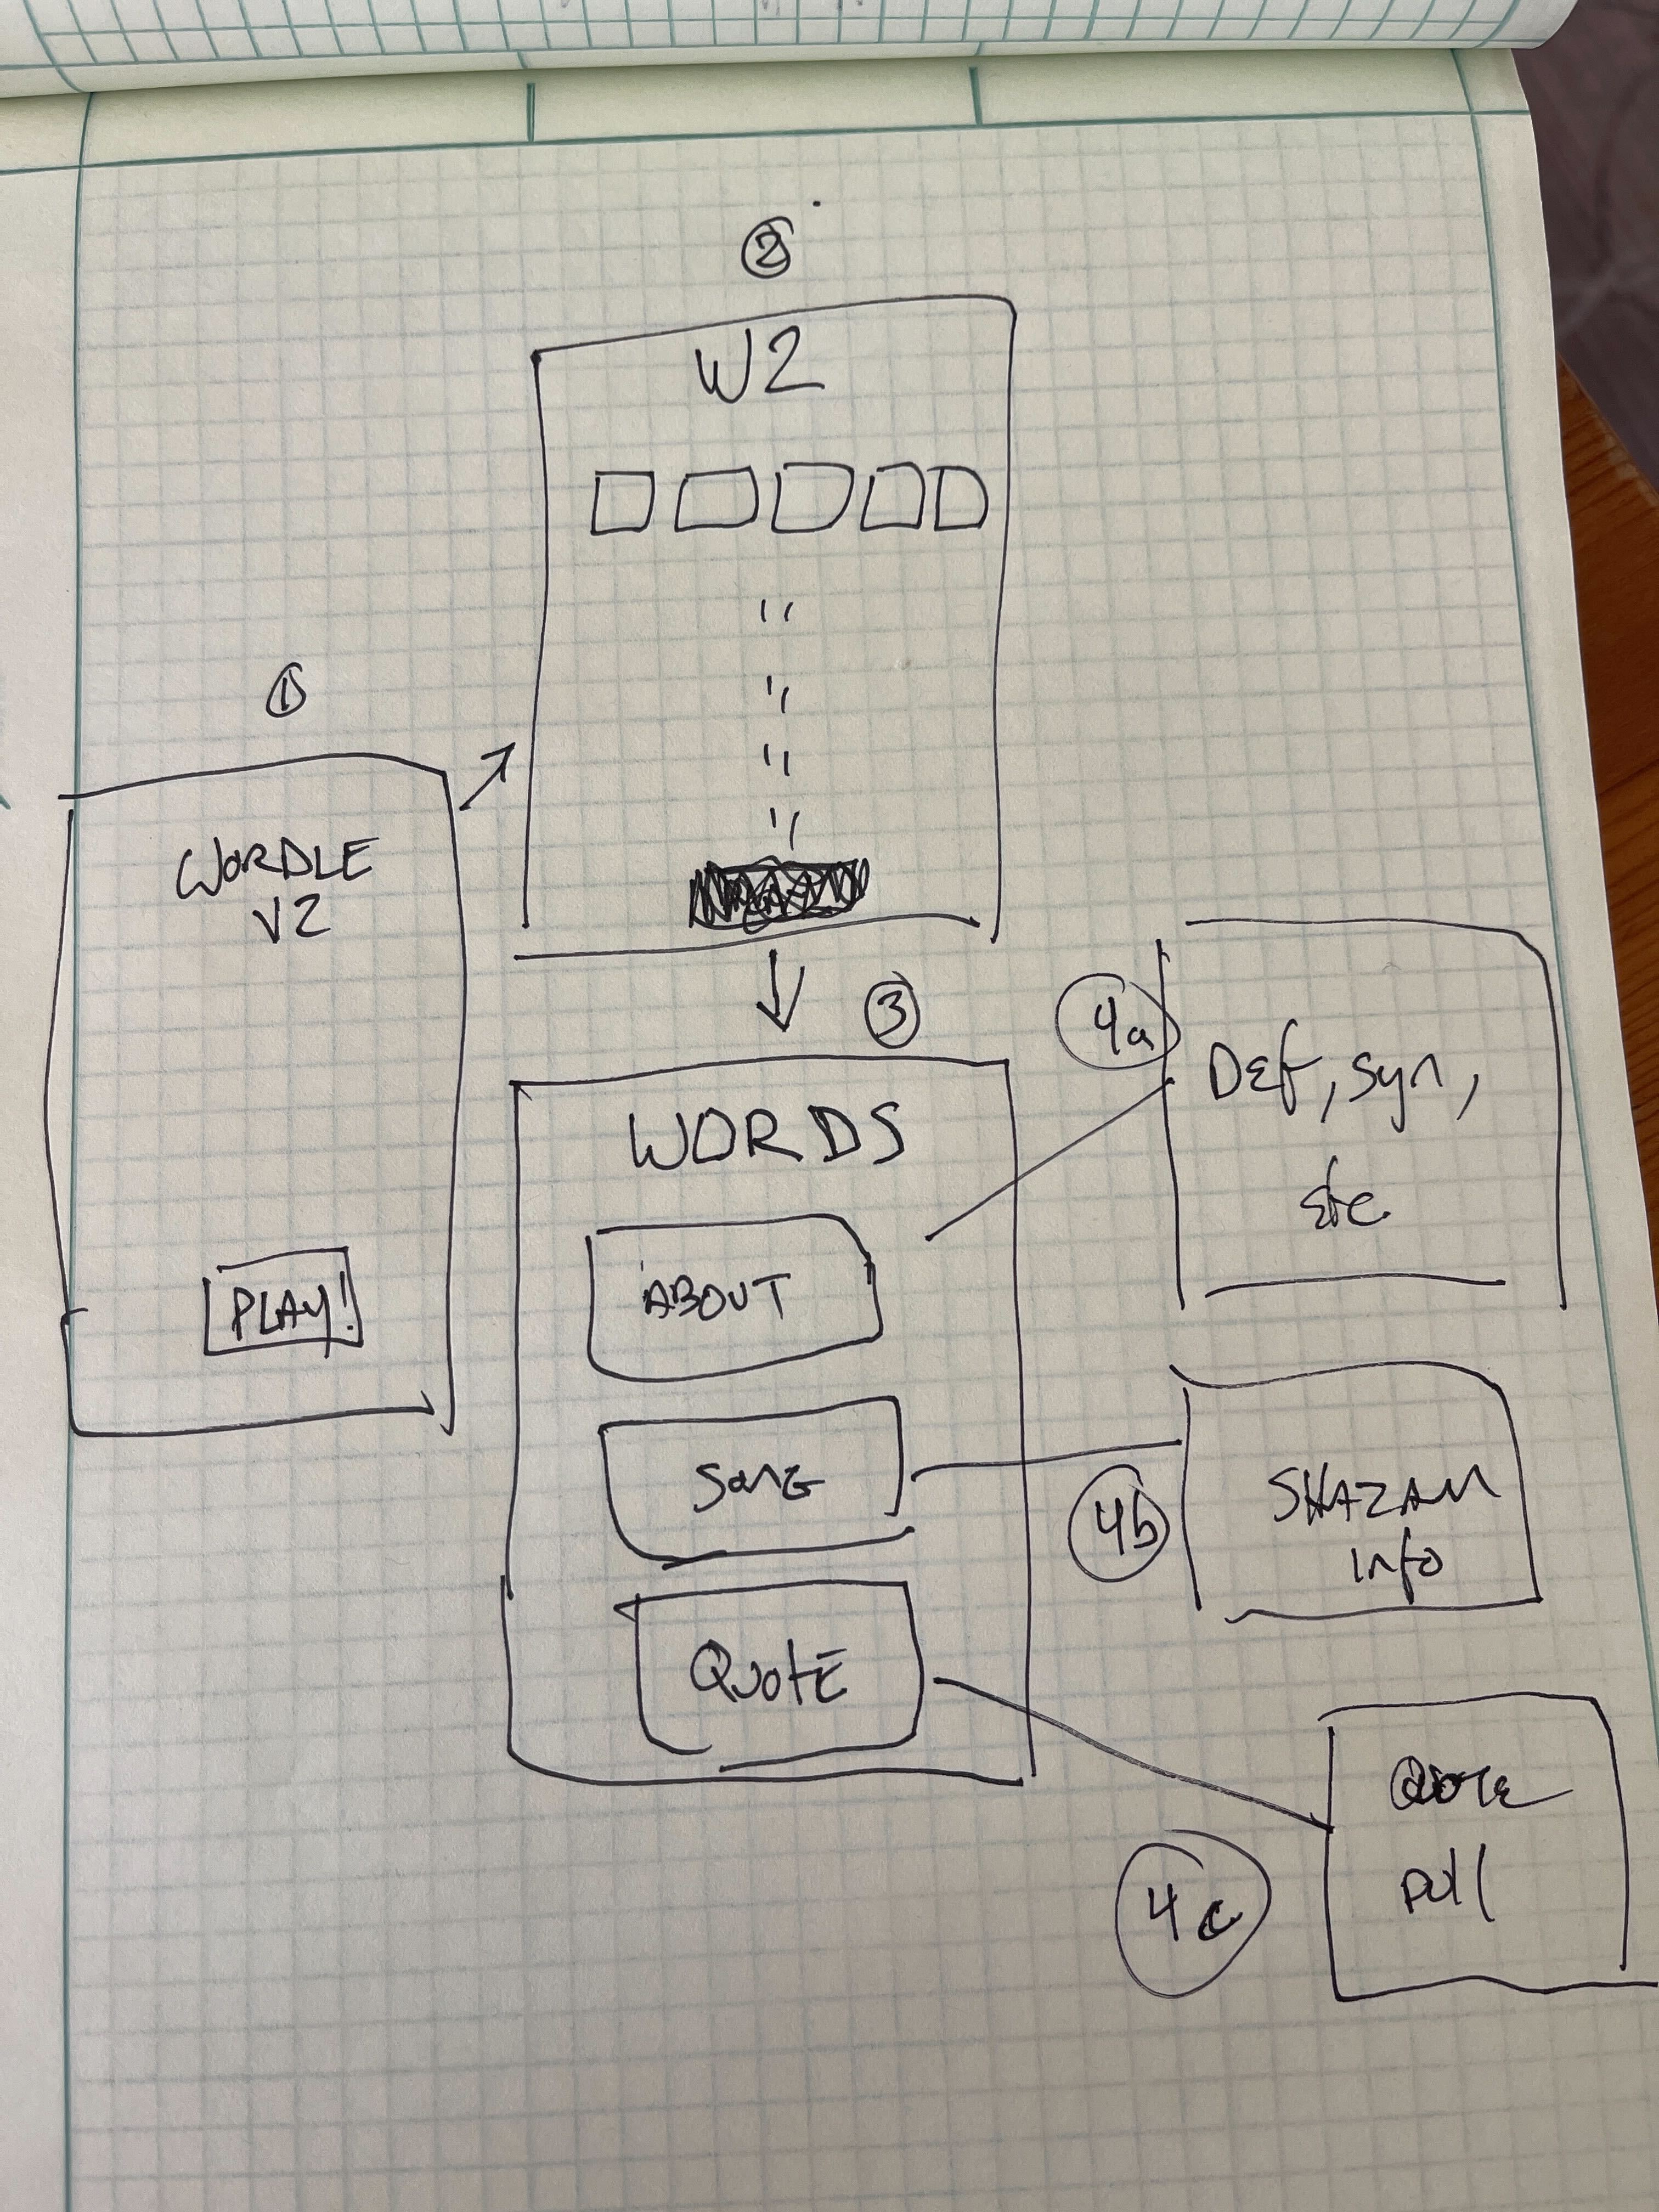 ②
W2
"
"
"
"
①
WORDLE
V2
PLAY!
③
WORDS
ABOUT
SONG
QUOTE
4a
DEF, syn,
etc
4b
SHAZAM
info
4c
QUOTE
pull